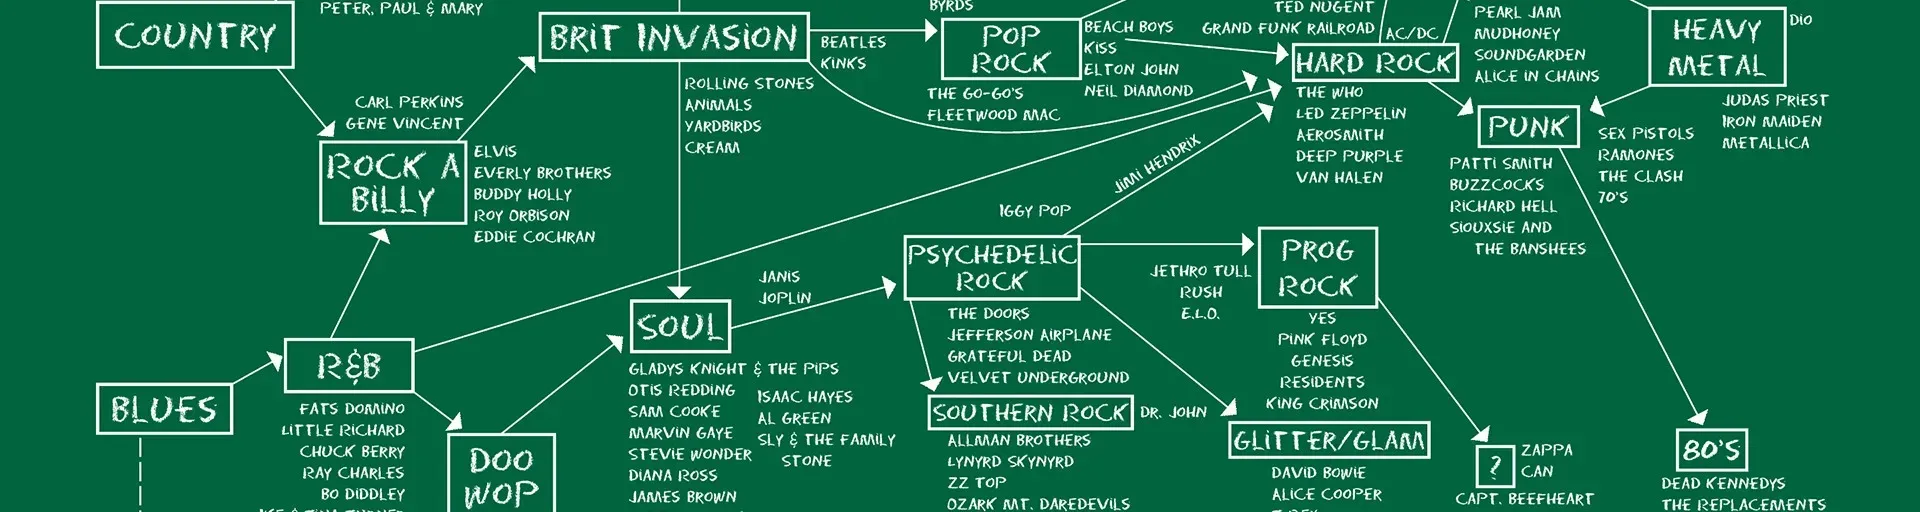 PETER, PAUL & MARY
COUNTRY
BRIT INVASION
BEATLES
KINKS
BYRDS
POP
ROCK
BEACH BOYS
KISS
ELTON JOHN
NEIL DIAMOND
THE GO-GO'S
FLEETWOOD MAC
TED NUGENT
GRAND FUNK RAILROAD
AC/DC
HARD ROCK
THE WHO
LED ZEPPELIN
AEROSMITH
DEEP PURPLE
VAN HALEN
PEARL JAM
MUDHONEY
SOUNDGARDEN
ALICE IN CHAINS
HEAVY
METAL
DIO
JUDAS PRIEST
IRON MAIDEN
METALLICA
PUNK
SEX PISTOLS
RAMONES
THE CLASH
70'S
PATTI SMITH
BUZZCOCKS
RICHARD HELL
SIOUXSIE AND
THE BANSHEES
CARL PERKINS
GENE VINCENT
ROCK A
BILLY
ELVIS
EVERLY BROTHERS
BUDDY HOLLY
ROY ORBISON
EDDIE COCHRAN
ROLLING STONES
ANIMALS
YARDBIRDS
CREAM
JIMI HENDRIX
IGGY POP
PSYCHEDELIC
ROCK
THE DOORS
JEFFERSON AIRPLANE
GRATEFUL DEAD
VELVET UNDERGROUND
JETHRO TULL
RUSH
E.L.O.
PROG
ROCK
YES
PINK FLOYD
GENESIS
RESIDENTS
KING CRIMSON
JANIS
JOPLIN
SOUL
GLADYS KNIGHT & THE PIPS
OTIS REDDING
SAM COOKE
MARVIN GAYE
STEVIE WONDER
DIANA ROSS
JAMES BROWN
ISAAC HAYES
AL GREEN
SLY & THE FAMILY
STONE
R&B
FATS DOMINO
LITTLE RICHARD
CHUCK BERRY
RAY CHARLES
BO DIDDLEY
BLUES
DOO
WOP
SOUTHERN ROCK
DR. JOHN
ALLMAN BROTHERS
LYNYRD SKYNYRD
ZZ TOP
OZARK MT. DAREDEVILS
GLITTER/GLAM
DAVID BOWIE
ALICE COOPER
?
ZAPPA
CAN
CAPT. BEEFHEART
80'S
DEAD KENNEDYS
THE REPLACEMENTS